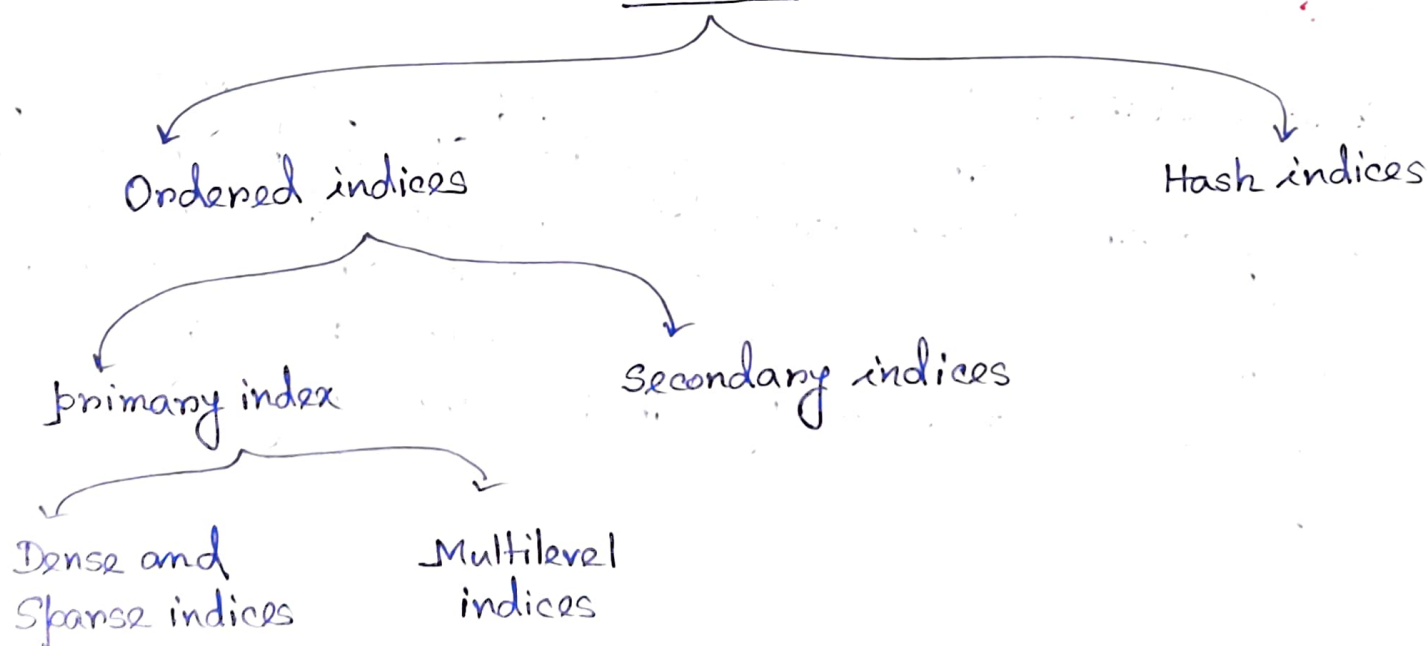 Ordered indices
Hash indices
primary index
Secondary indices
Dense and
Sparse indices
Multilevel
indices